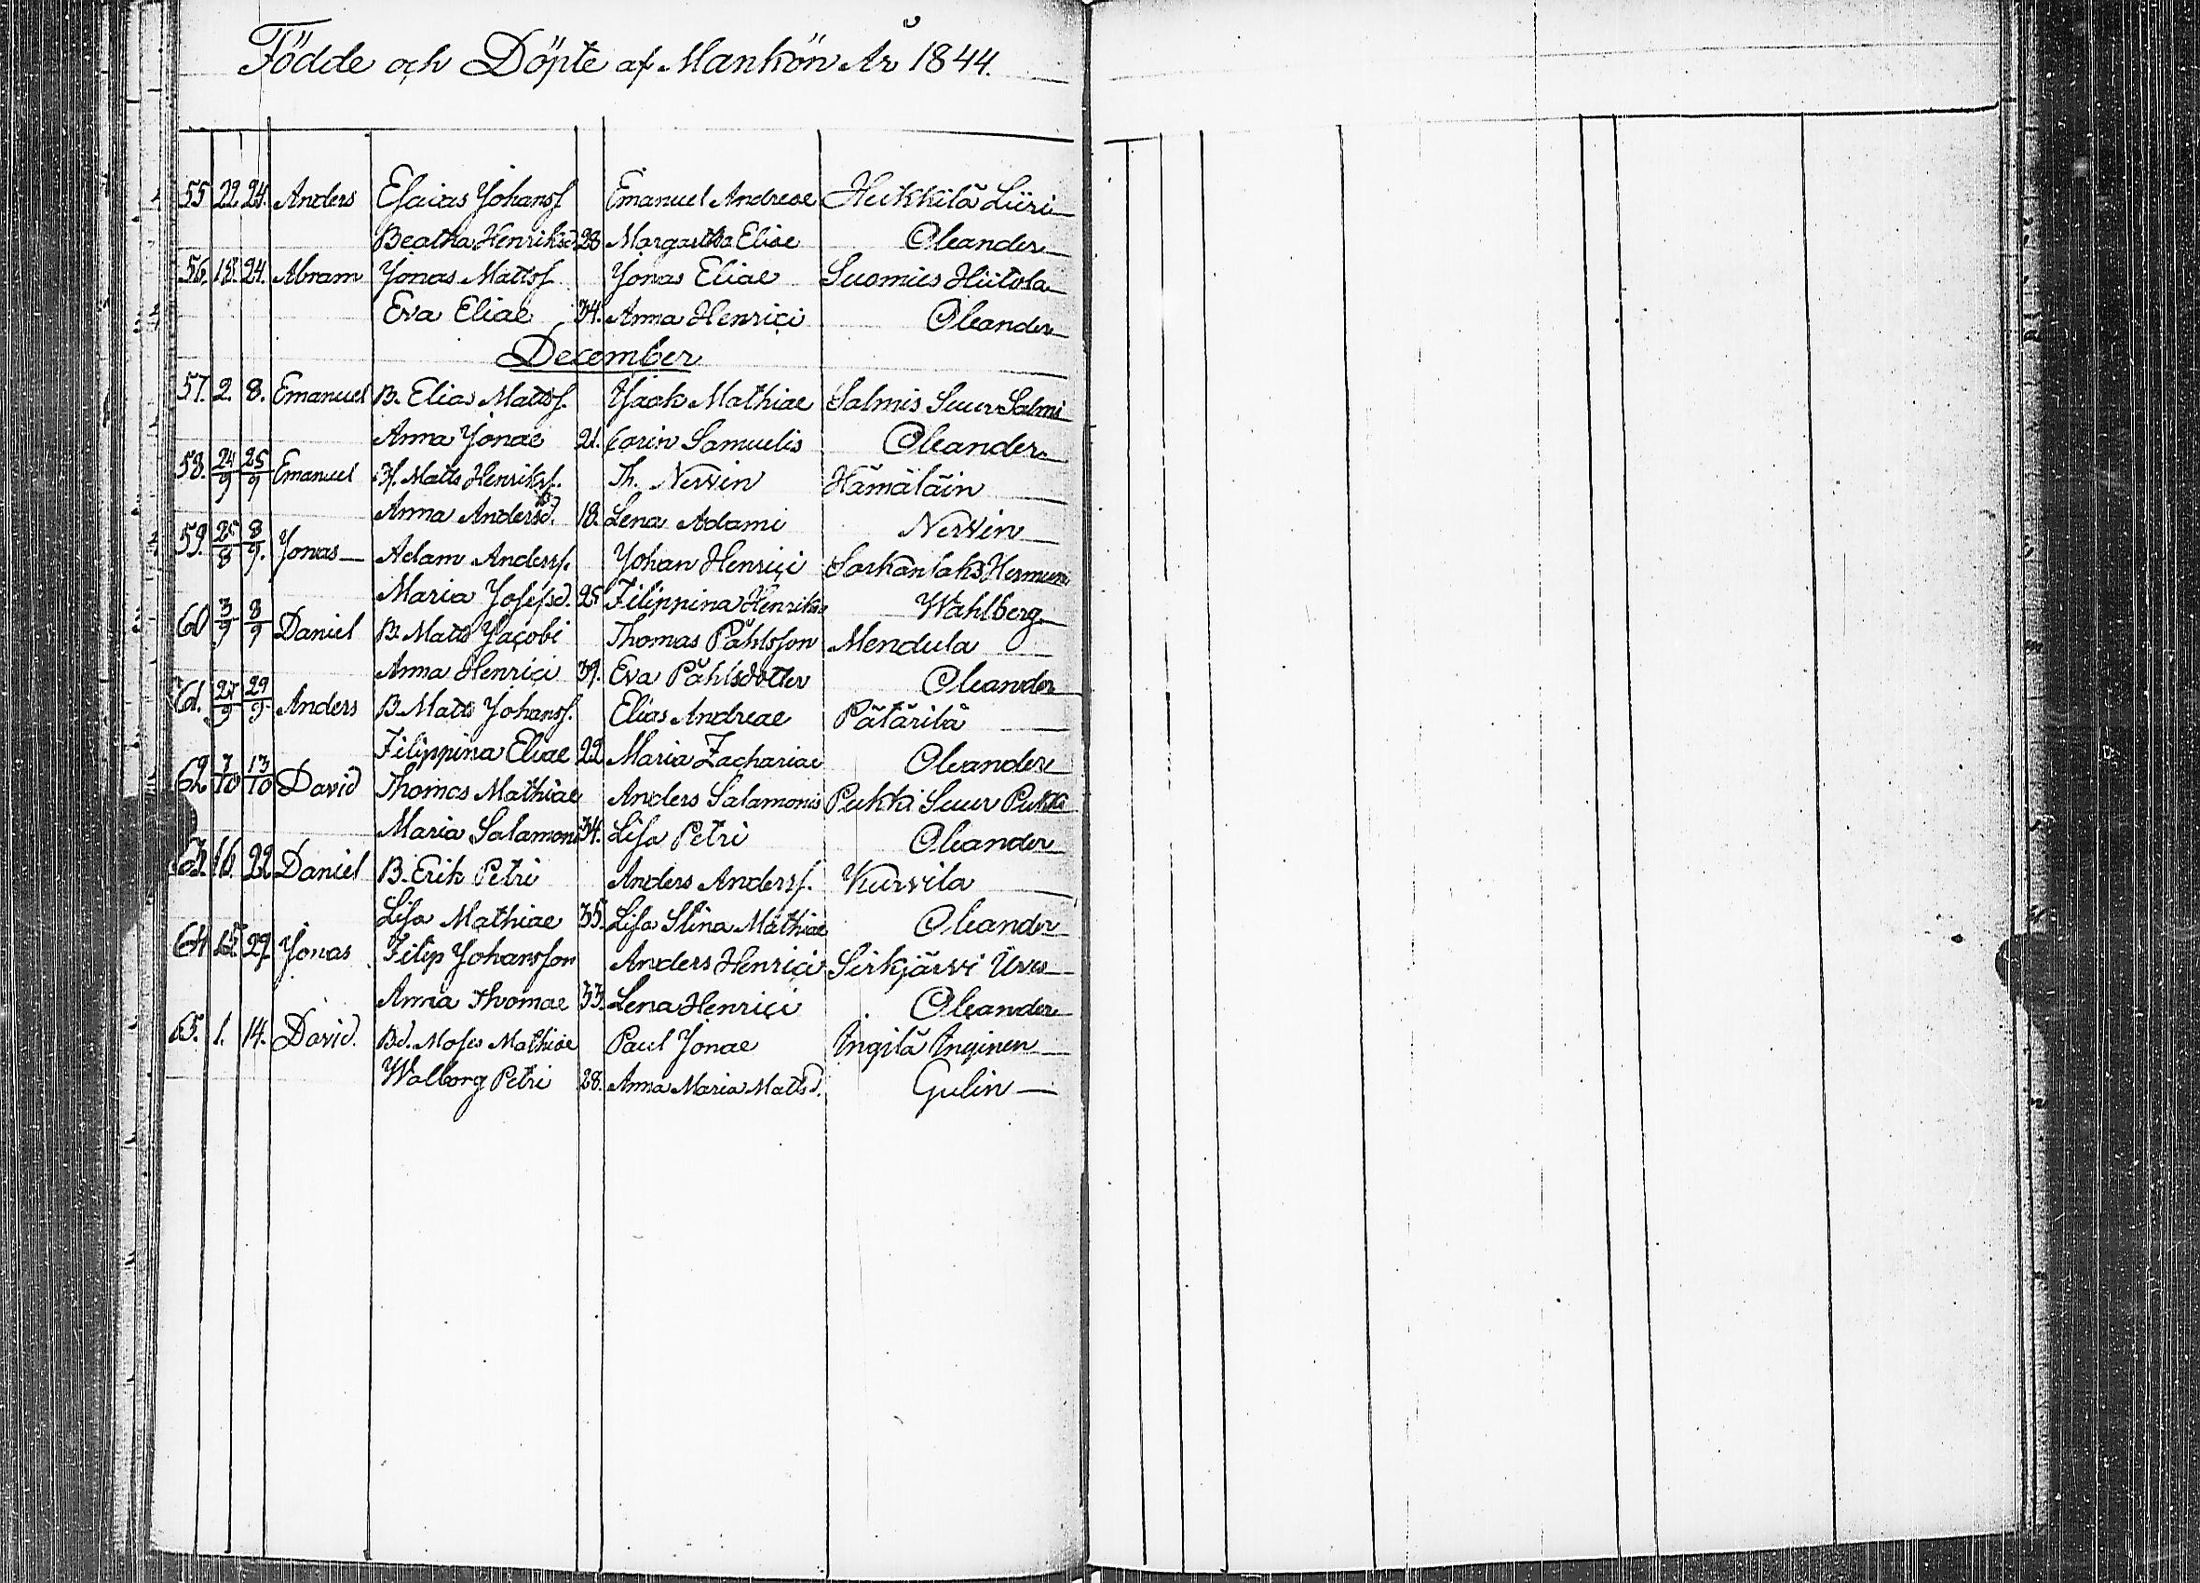 Födde och Döpte af Mankön År 1844.
55 22. 24. Anders Esaias Johansf Emanuel Andreae Heikkilä Liiri
Beatha Henriksd 28 Margaetha Eliae Oleander
56. 18. 24. Abram Jonas Mattsf Jonas Eliae Suomies Hiitola
Eva Eliae 34. Anna Henrici Oleander
December
57. 2. 8. Emanuel B. Elias Mattsf. Isaak Mathiae Salmis Suur Salmi
Anna Jonae 21. Carin Samuelis Oleander
58. 24/9 25/9 Emanuel If. Matts Henriksf. Th. Nervin Hämäläin
Anna Andersd. 18. Lena Adami Nervin
59. 25/8 8/9. Jonas Adam Andersf. Johan Henrici Sarkanlaks
Maria Josefsd. 25 Filippina Henriksd Wahlberg
60 3/9 8/9 Daniel B. Matts Jacobi Thomas Påhlsson Mendula
Anna Henrici 39. Eva Påhlsdotter Oleander
61. 27/9 29/9 Anders B. Matts Johansf. Elias Andreae Pätärilä
Filippina Eliae 22 Maria Zachariae Oleander
62 7/10 13/10 David Thomas Mathiae Anders Salamonis Pukki Suur Pukki
Maria Salamonis 34. Lisa Petri Oleander
63. 16 22 Daniel B. Erik Petri Anders Andersf. Kurvila
Lisa Mathiae 35. Lisa Stina Mathiae Oleander
64 29 Jonas Filip Johansson Anders Henrici Sirkjärvi
Anna Thomae 33. Lena Henrici Oleander
65. 1. 14. David. Bd. Moses Mathiae Paul Jonae Ingilä Inginen
Walborg Petri 28. Anna Maria Mattsd. Gulin